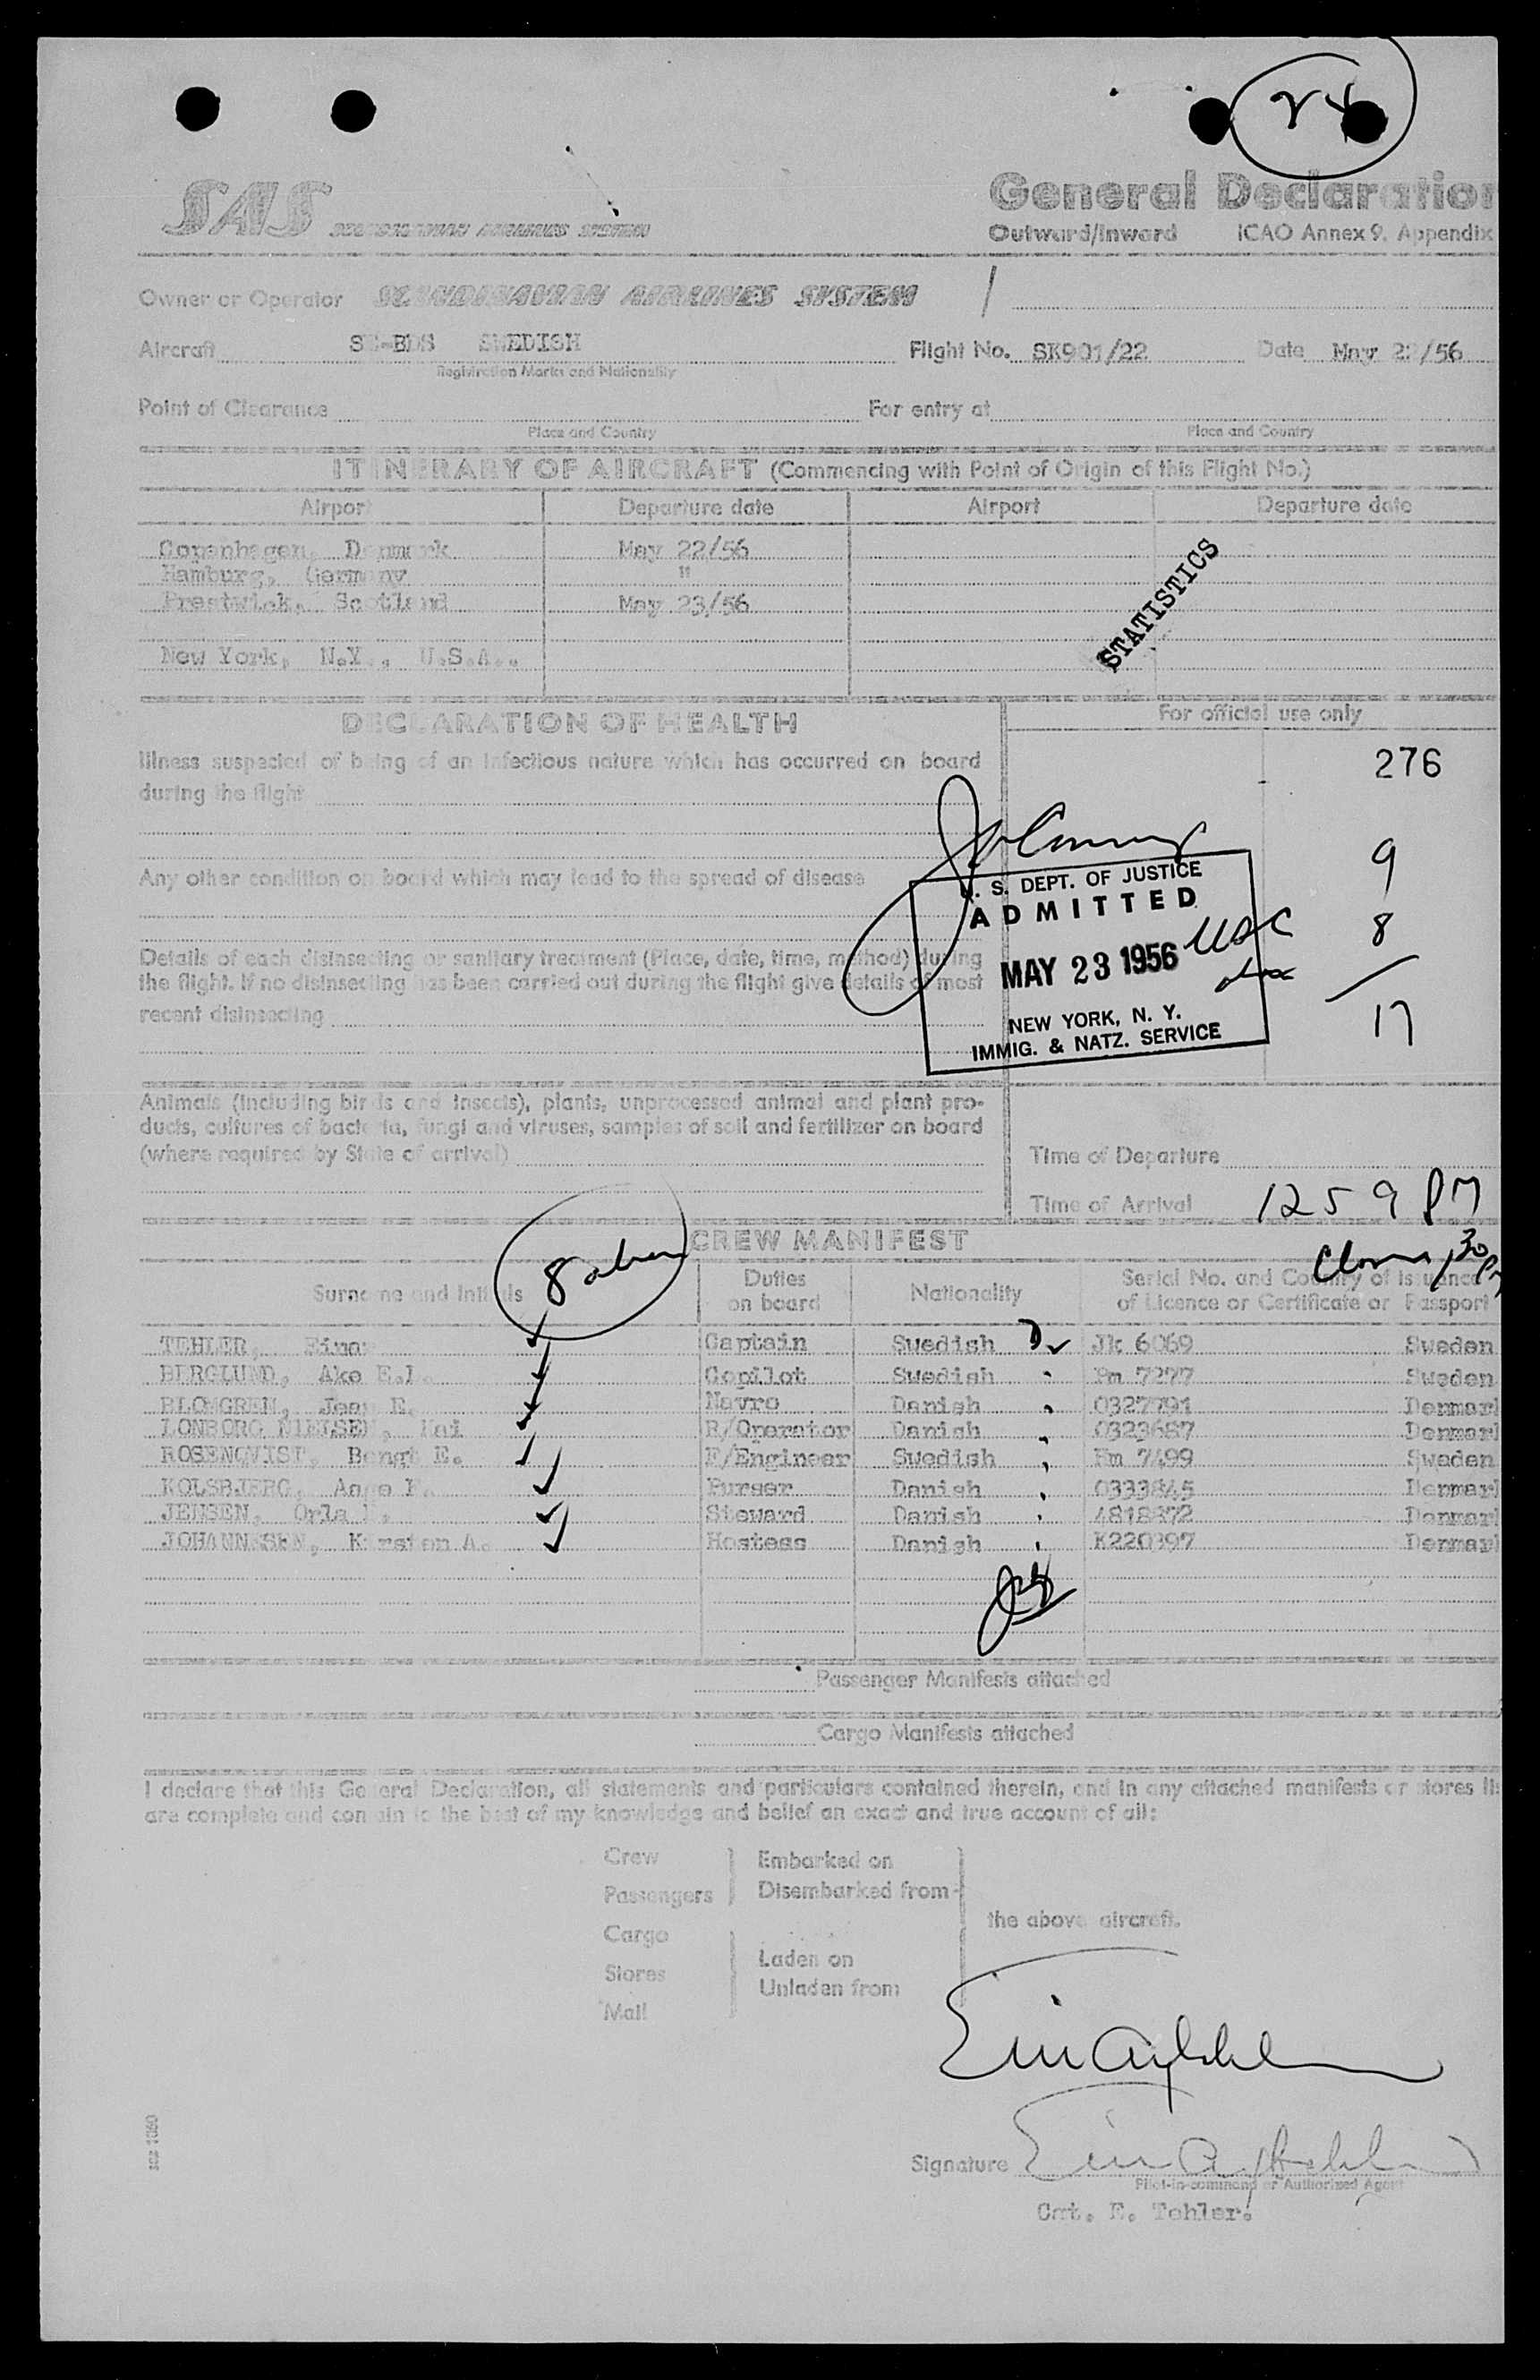 24
SAS SCANDINAVIAN AIRLINES SYSTEM
General Declaration
Outward/Inward ICAO Annex 9, Appendix
Owner or Operator SCANDINAVIAN AIRLINES SYSTEM /
Aircraft SWEDISH Flight No. SK901/22 Date May 22/56
Registration Marks and Nationality
Point of Clearance For entry at
Place and Country Place and Country
ITINERARY OF AIRCRAFT (Commencing with Point of Origin of this Flight No.)
Airport Departure date Airport Departure date
Copenhagen, Denmark May 22/56
Hamburg, Germany "
Prestwick, Scotland May 23/56
STATISTICS
New York, N.Y., U.S.A..
DECLARATION OF HEALTH
For official use only
Illness suspected of being of an infectious nature which has occurred on board
during the flight
276
Any other condition on board which may lead to the spread of disease
9
8
17
U. S. DEPT. OF JUSTICE
ADMITTED
MAY 23 1956 USC
NEW YORK, N. Y.
IMMIG. & NATZ. SERVICE
Details of each disinsecting or sanitary treatment (Place, date, time, method) during
the flight. If no disinsecting has been carried out during the flight give details of most
recent disinsecting
Animals (including birds and insects), plants, unprocessed animal and plant pro-
ducts, cultures of bacteria, fungi and viruses, samples of soil and fertilizer on board
(where required by State of arrival)
Time of Departure
Time of Arrival 1259 PM
CREW MANIFEST
8
Surname and Initials Duties on board Nationality Serial No. and Country of Issuance of Licence or Certificate or Passport
TEHLER, Einar Captain Swedish Jk 6069 Sweden
BERGLUND, Ake E.I. Copilot Swedish Sweden
BLOMGREN, Navro Danish 0327791 Denmark
LONBORG NIELSEN, Kai R/Operator Danish 0323687 Denmark
ROSENQVIST, Bengt E. F/Engineer Swedish 7499 Sweden
KOLSBJERG, Aage Purser Danish 0333845 Denmark
JENSEN, Orla Steward Danish Denmark
JOHANNESEN, Kirsten A. Hostess Danish K220397 Denmark
Passenger Manifests attached
Cargo Manifests attached
I declare that this General Declaration, all statements and particulars contained therein, and in any attached manifests or stores
are complete and contain to the best of my knowledge and belief an exact and true account of all:
Crew
Passengers
Cargo
Stores
Mail
Embarked on
Disembarked from
Laden on
Unladen from
the above aircraft.
Einar Tehler
Signature Einar Tehler
Pilot-in-command or Authorized Agent
Cpt. E. Tehler.